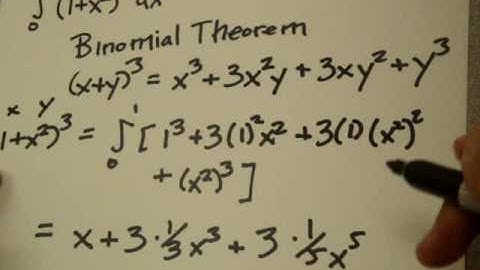 ∫₀ (1+x²) dx
Binomial Theorem
(x+y)³ = x³ + 3x²y + 3xy² + y³
x y
1+x²)³ = ∫₀¹ [1³ + 3(1)²x² + 3(1)(x²)²
+ (x²)³]
= x + 3·⅓x³ + 3·⅕x⁵